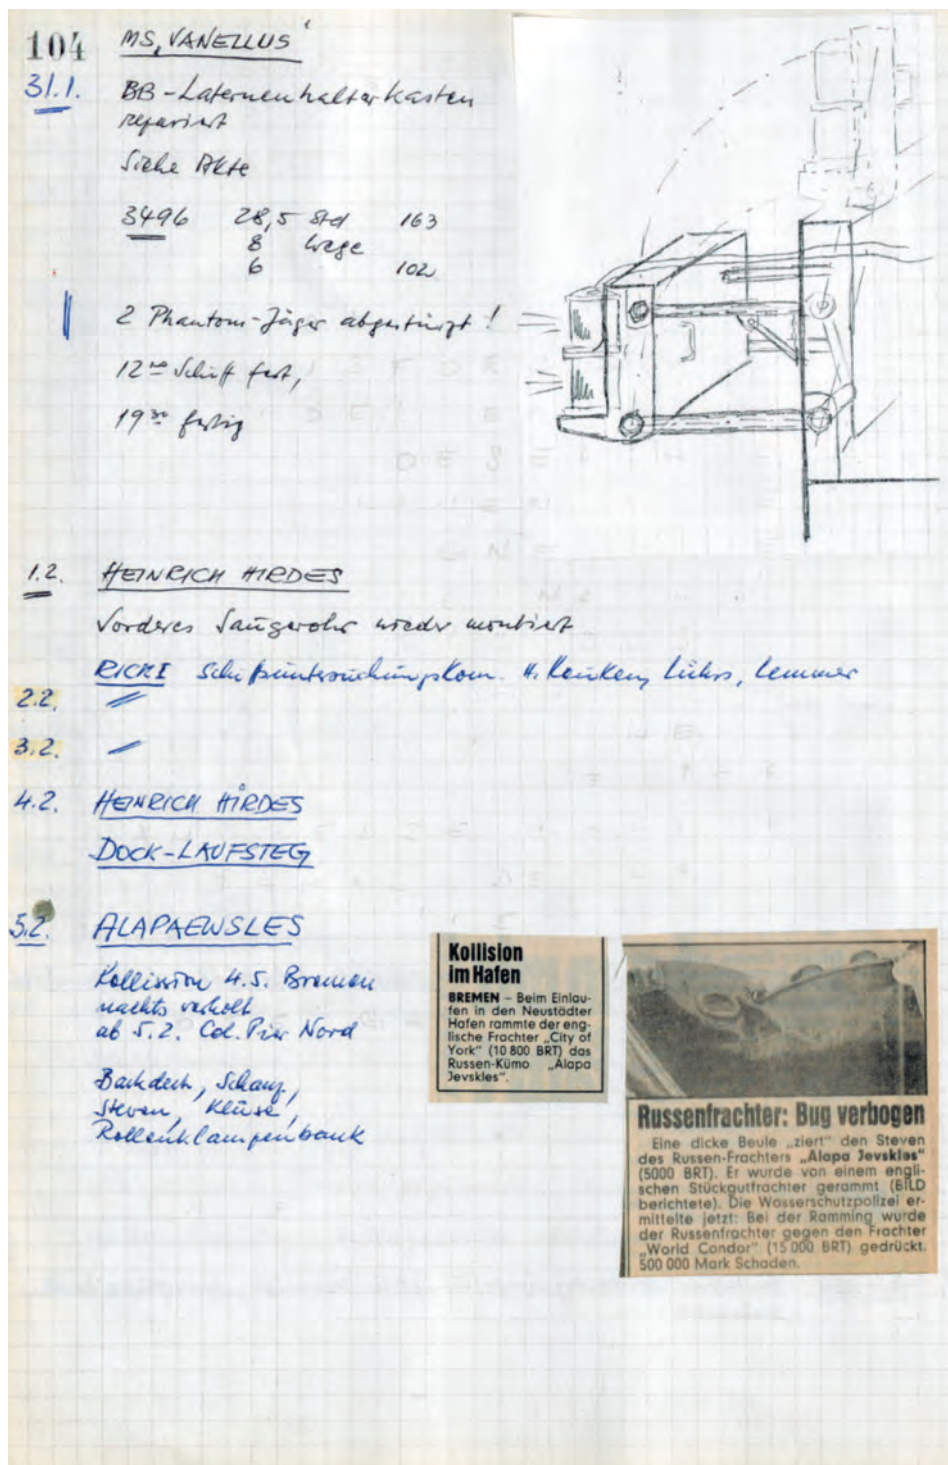 104 MS „VANELLUS"
31.1. BB-Laternenhalterkasten
repariert
Siehe Akte
3496 28,5 Std 163
8 Wege
6 102
2 Phantom-Jäger abgestürzt!
12⁰⁰ Schiff fest,
19³⁰ fertig
1.2. HEINRICH HIRDES
Vorderes Saugerohr wieder montiert
RICKI Schiffsuntersuchungskom. H. Keuken, Lührs, Lemmer
2.2. "
3.2. "
4.2. HEINRICH HIRDES
DOCK-LAUFSTEG
5.2. ALAPAEWSLES
Kollission 4.5. Bremen
nachts verholt
ab 5.2. Col. Pier Nord
Backdeck, Schanz,
Steven, Klüse,
Rollenklampenbank
Kollision
im Hafen
BREMEN – Beim Einlau-
fen in den Neustädter
Hafen rammte der eng-
lische Frachter „City of
York" (10 800 BRT) das
Russen-Kümo „Alapa
Jevskles".
Russenfrachter: Bug verbogen
Eine dicke Beule „ziert" den Steven
des Russen-Frachters „Alapa Jevskles"
(5000 BRT). Er wurde von einem engli-
schen Stückgutfrachter gerammt (BILD
berichtete). Die Wasserschutzpolizei er-
mittelte jetzt: Bei der Rammung wurde
der Russenfrachter gegen den Frachter
„World Condor" (15 000 BRT) gedrückt.
500 000 Mark Schaden.